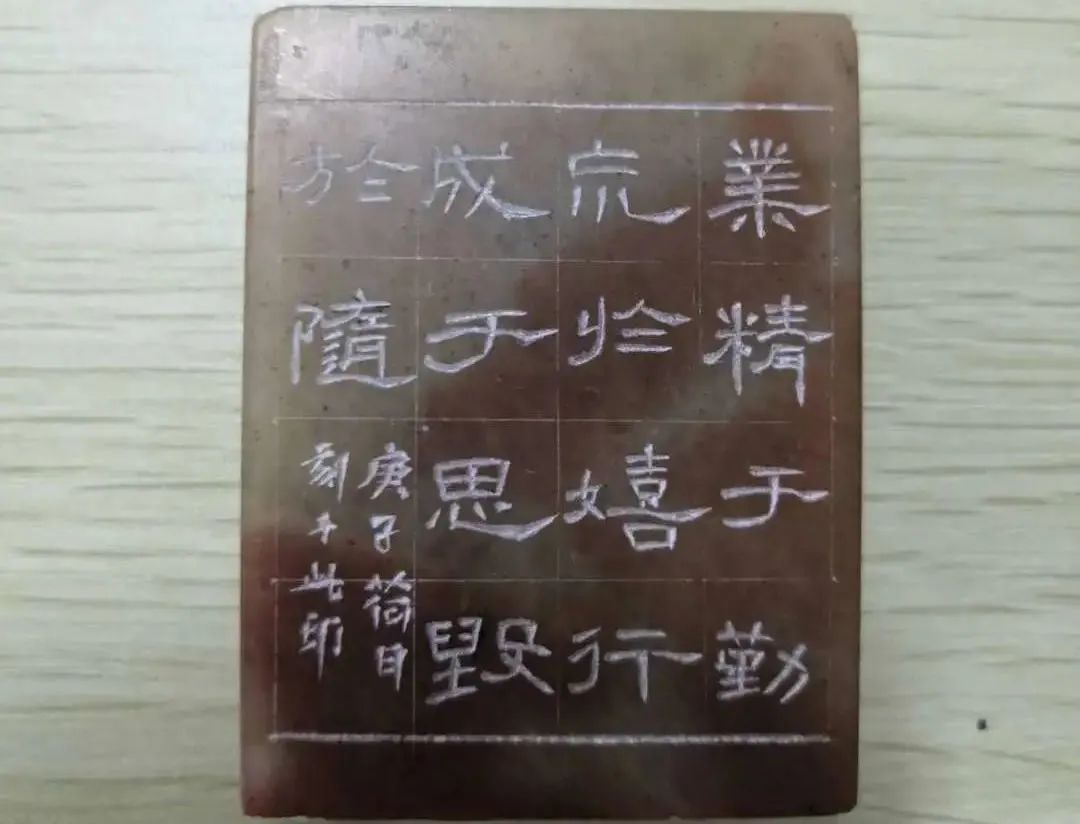 業精于勤
荒於嬉行
成于思毀
於隨
庚子荷日
刻于此印